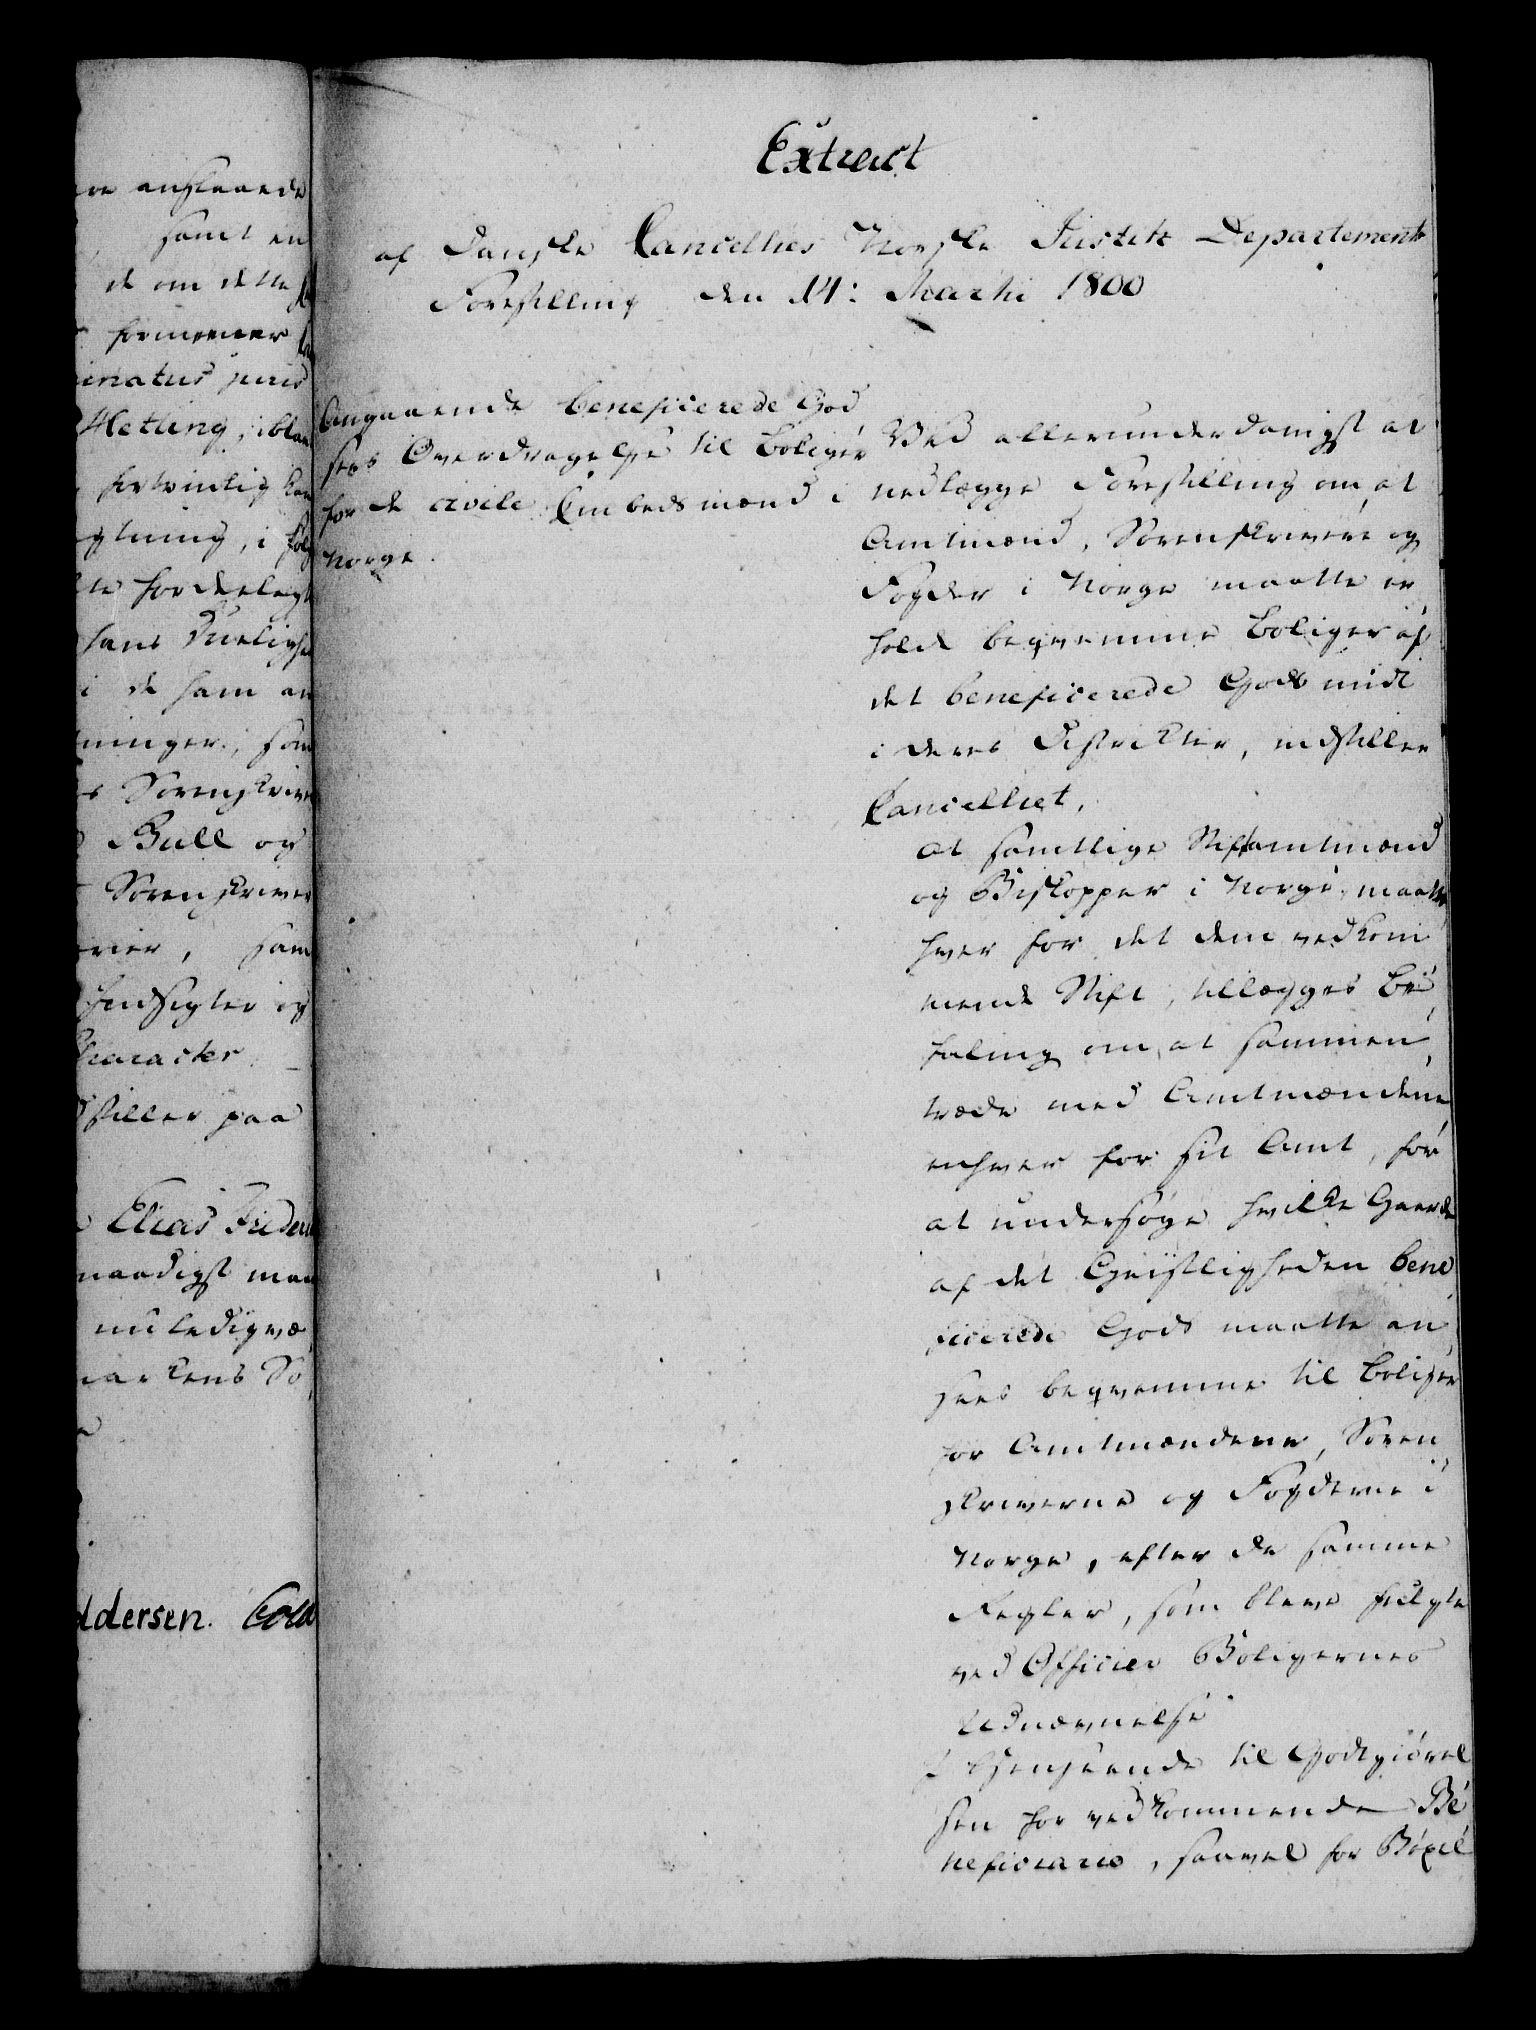 ere anslaaede
samt en
de om dette
formeener
inatus juris
Hetling, ibla
fortrinlig
gtning, i føl
te fordeelagt
hans Duelighe
i de ham an
ninger, som
Sorenskriver
Bull og
Sorenskriver
rier, sam
Indsigter og
Character
dstiller paa
Elias Frideri
naadigst maa
nu ledigvæ
markens So
ldersen. Cold
Extract
af Danske Cancellies Norske Justitz Departements
Forestilling den 14: Martii 1800
Angaaende beneficerede God
ses Overdragelse til Boliger
for de civile Embedsmænd i
Norge.
Ved allerunderdanigst at
nedlægge Forestilling om, at
Amtmænd, Sorenskrivere og
Fogder i Norge maatte er
holde beqvemme Boliger af
det beneficerede Gods midt
i deres Districter, indstiller
Cancelliet,
at samtlige Stiftamtmænd
og Biskopper i Norge, maatte
hver for det dem vedkom
mende Stift, tillægges Be
faling om, at sammen
træde med Amtmændene
enhver for sit Amt, for
at undersøge hvilke Gaarde
af det Geistligheden bene
ficerede Gods maatte an
sees beqvemme til Boliger
for Amtmændene, Soren
skriverne og Fogderne i
Norge, efter de samme
Regler, som bleve fulgte
ved Officier Boligernes
Udnævnelse
I Henseende til Godtgiørel
sen for vedkommende Be
neficiario, saavel for Böxel